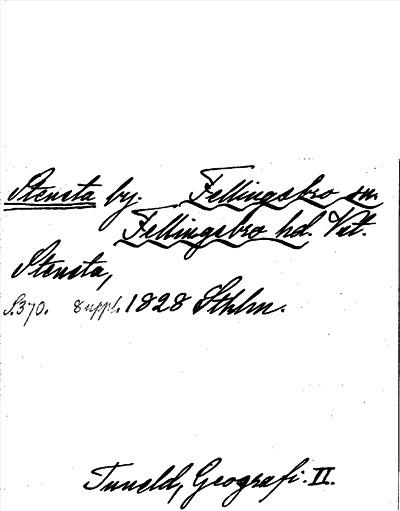 Stensta by. Fellingsbro sn.
Fellingsbro hd. Vstl.
Stensta,
S. 370. Suppl. 1828 Sthlm.
Tuneld, Geografi. II.